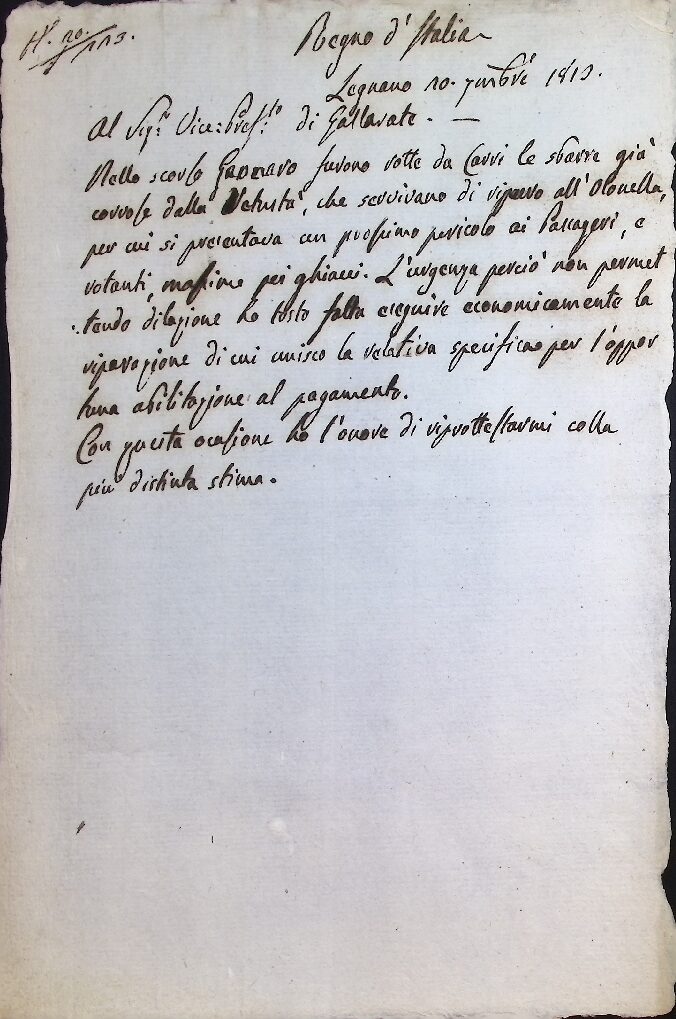 N. 20.
113.
Regno d'Italia
Legnano 20. 7mbre 1813.
Al Sigr. Vice=Prefto. di Gallarate. —
Nello scorso Gennaro furono rotte da Carri le sbarre già
corrose dalla Vetustà, che servivano di riparo all'Olonella,
per cui si presentava un prossimo pericolo ai Passageri, e
rotanti, massime pei ghiacci. L'urgenza perciò non permet
tendo dilazione ho tosto fatta eseguire economicamente la
riparazione di cui unisco la relativa specifica per l'oppor
tuna abilitazione al pagamento.
Con questa ocasione ho l'onore di riprottestarmi colla
più distinta stima.